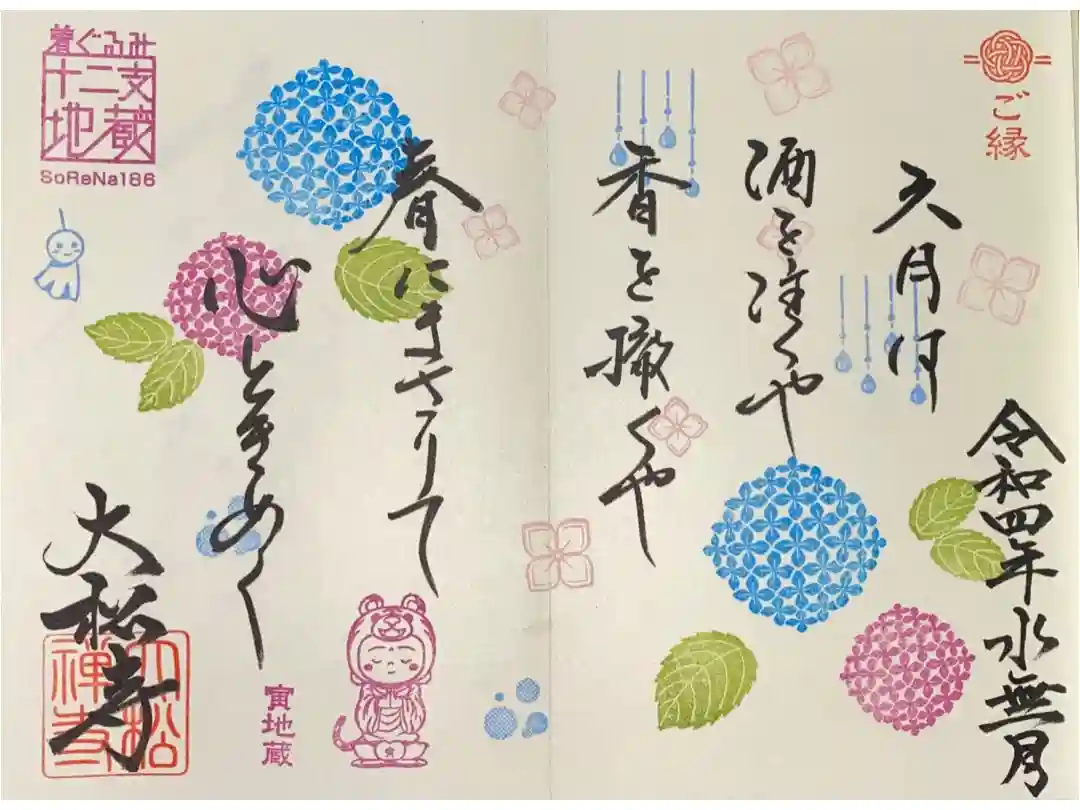 ご縁
令和四年水無月
月
酒を注くや
香を撒くや
春にまさりて
心ときめく
大松寺
大松禅寺
着ぐるみ
十二支
地蔵
SoReNa186
寅地蔵